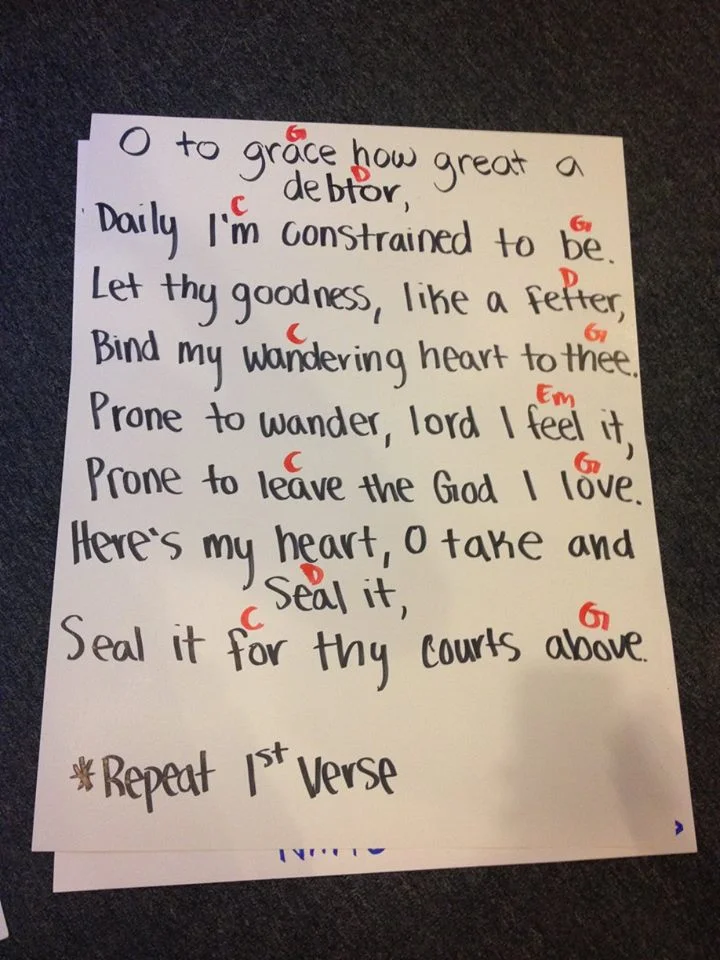 G
O to grace how great a
D
debtor,
C G
Daily I'm constrained to be.
D
Let thy goodness, like a fetter,
C G
Bind my wandering heart to thee.
Em
Prone to wander, lord I feel it,
C G
Prone to leave the God I love.
Here's my heart, O take and
D
Seal it,
C G
Seal it for thy courts above.
*Repeat 1st Verse